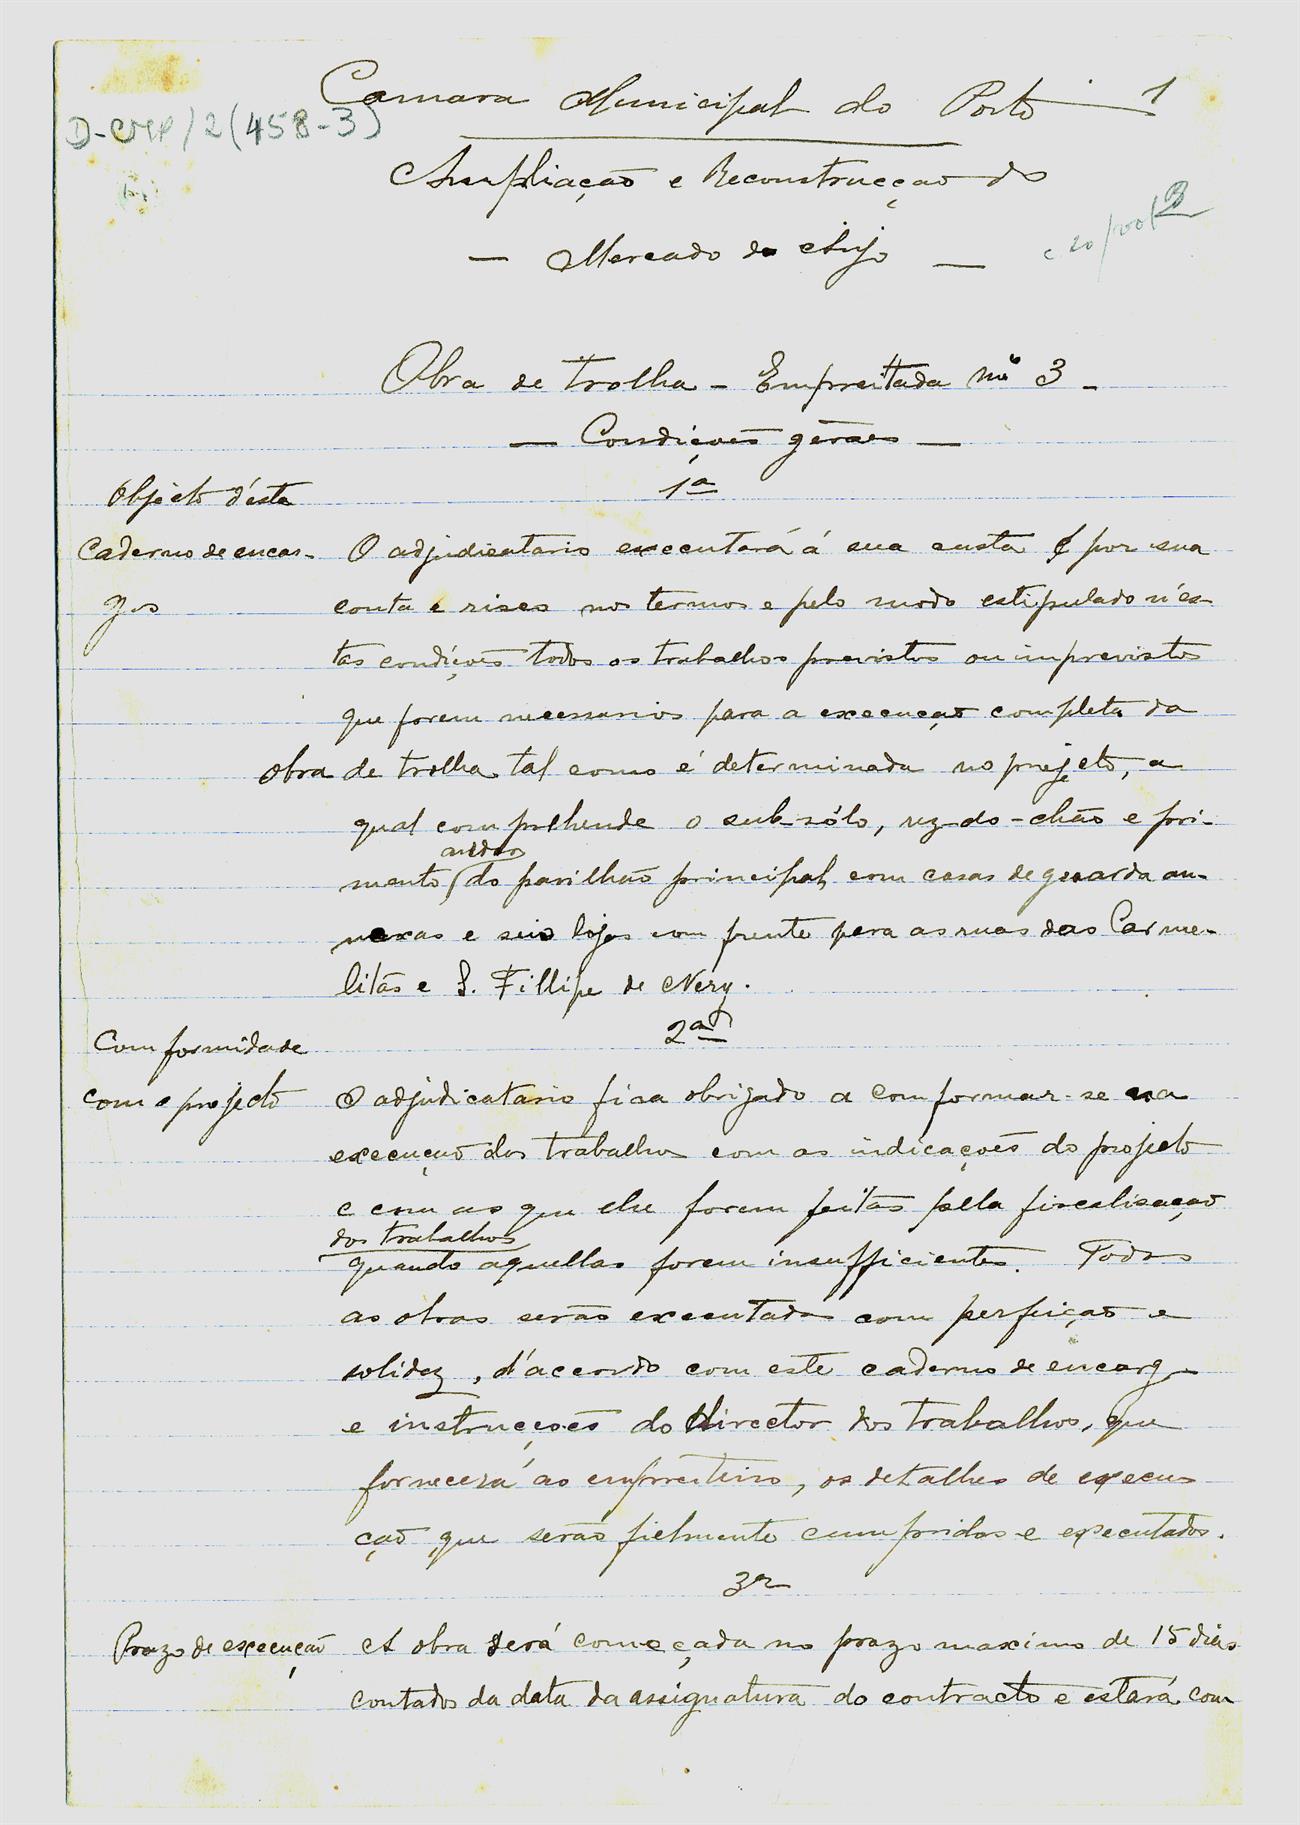 Camara Municipal do Porto 1
D-CMP/2(458-3)
Ampliação e Reconstrucção do
— Mercado do Anjo —
Obra de trolha - Empreitada nº 3 -
— Condições géraes —
1ª
Objecto d'este
Caderno de encar-
gos
O adjudicatario executará á sua custa e por sua
conta e risco nos termos e pelo modo estipulado n'és-
tas condições todos os trabalhos previstos ou imprevistos
que forem necessarios para a execução completa da
obra de trolha tal como é determinada no projeto, a
qual comprehende o sub-sólo, rez-do-chão e pri-
andar
mento do pavilhão principal, com casas de guarda an-
nexas e seis lojas com frente para as ruas das Carme-
litas e S. Fillipe de Nery.
2ª
Comformidade
com o projecto
O adjudicatario fica obrigado a comformar-se na
execução dos trabalhos com as indicações do projecto
e com as que elhe forem feitas pella fiscalisação
dos trabalhos
quando aquellas forem insufficientes. Todas
as obras serão executadas com perfeição e
solidez, d'acordo com este caderno de encargo
e instrucções do director dos trabalhos, que
fornecerá ao empreiteiro, os detalhes de execu
ção que serão fielmente cumpridos e executados.
3ª
Prazo de execução
A obra será começada no prazo maximo de 15 dias
contados da data da assignatura do contracto e estará com